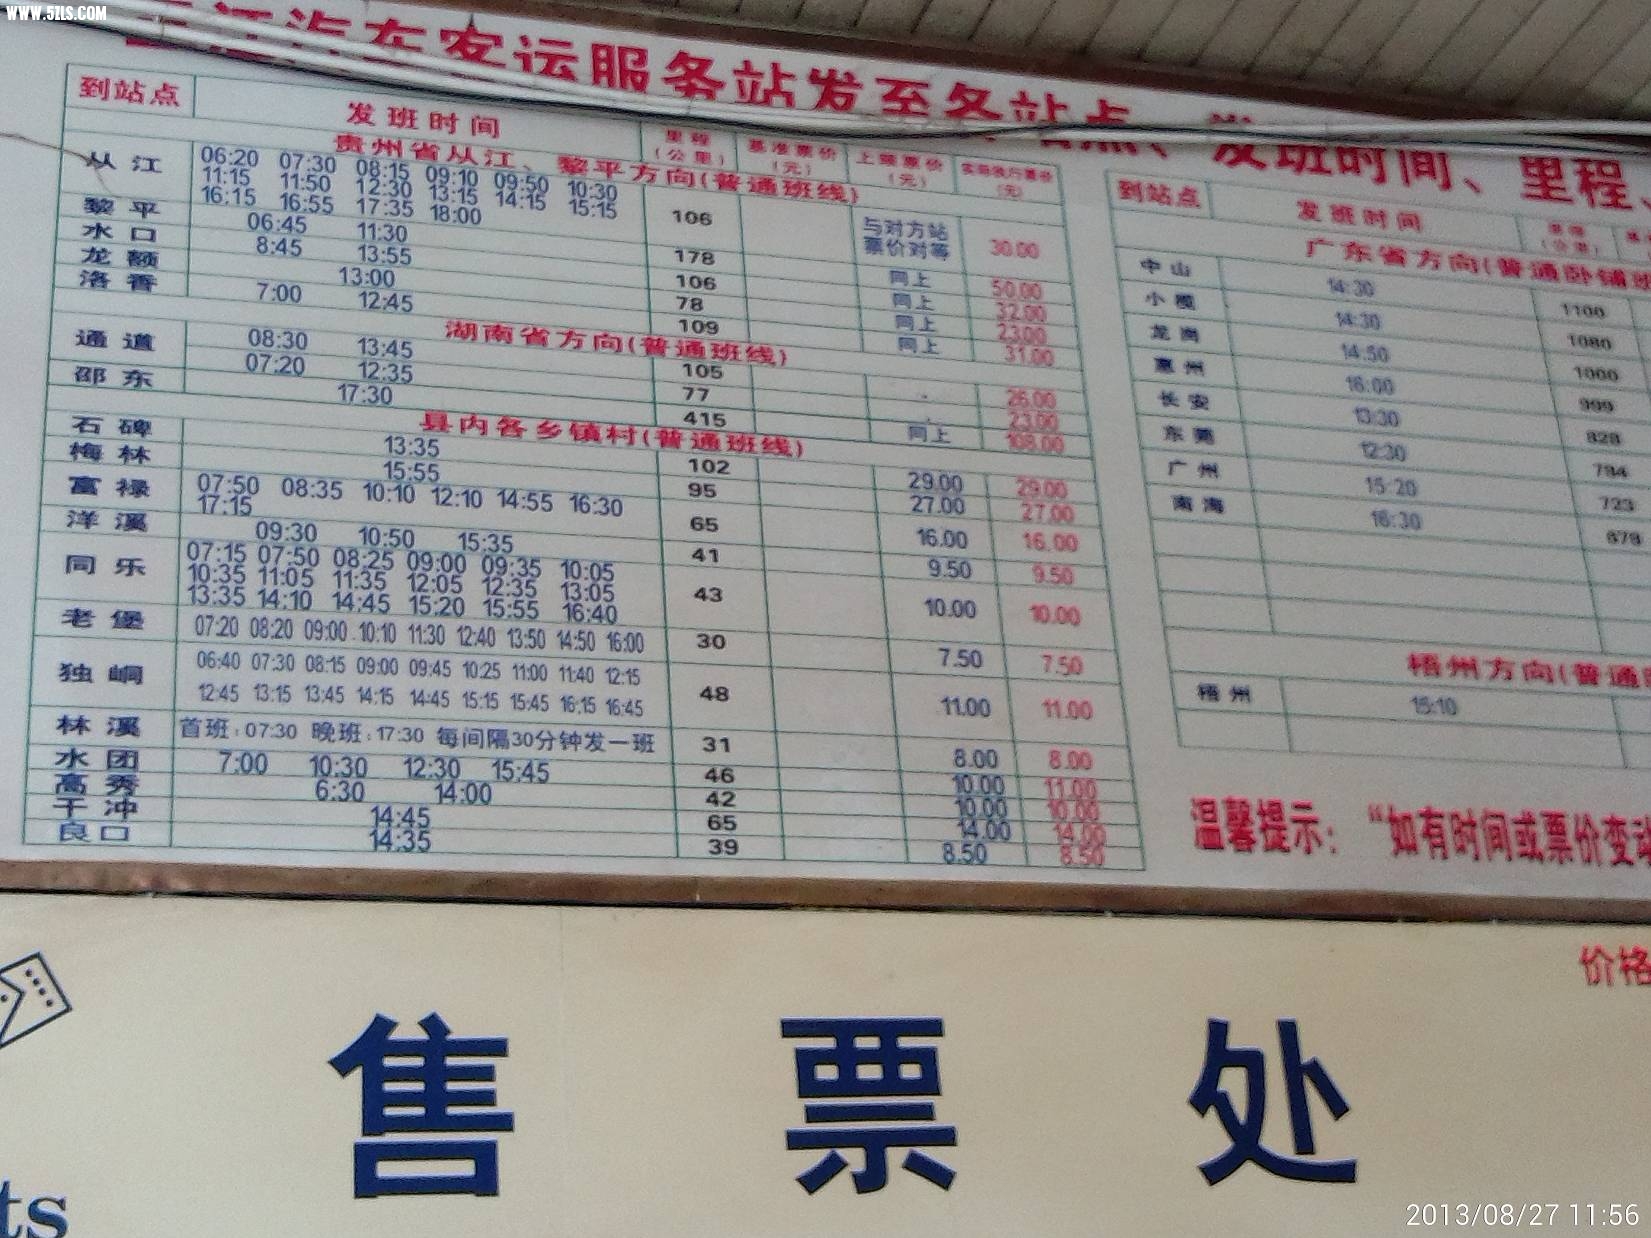 WWW.5ZLS.COM
江汽车客运服务站发至各站点、发班时间、里程、
到站点 发班时间 里程(公里) 基准票价(元) 上限票价(元) 实际执行票价(元)
贵州省从江、黎平方向(普通班线)
从江 06:20 07:30 08:15 09:10 09:50 10:30
11:15 11:50 12:30 13:15 14:15 15:15
16:15 16:55 17:35 18:00 106 与对方站票价对等 30.00
黎平 06:45 11:30 178 同上 50.00
水口 8:45 13:55 106 同上 32.00
龙额 13:00 78 同上 23.00
洛香 7:00 12:45 109 同上 31.00
湖南省方向(普通班线)
通道 08:30 13:45 105 26.00
07:20 12:35 77 23.00
邵东 17:30 415 同上 108.00
县内各乡镇村(普通班线)
石碑 13:35 102 29.00 29.00
梅林 15:55 95 27.00 27.00
富禄 07:50 08:35 10:10 12:10 14:55 16:30
17:15 65 16.00 16.00
洋溪 09:30 10:50 15:35 41 9.50 9.50
同乐 07:15 07:50 08:25 09:00 09:35 10:05
10:35 11:05 11:35 12:05 12:35 13:05
13:35 14:10 14:45 15:20 15:55 16:40 43 10.00 10.00
老堡 07:20 08:20 09:00 10:10 11:30 12:40 13:50 14:50 16:00 30 7.50 7.50
独峒 06:40 07:30 08:15 09:00 09:45 10:25 11:00 11:40 12:15
12:45 13:15 13:45 14:15 14:45 15:15 15:45 16:15 16:45 48 11.00 11.00
林溪 首班:07:30 晚班:17:30 每间隔30分钟发一班 31 8.00 8.00
水团 7:00 10:30 12:30 15:45 46 10.00 11.00
高秀 6:30 14:00 42 10.00 10.00
干冲 14:45 65 14.00 14.00
良口 14:35 39 8.50 8.50
到站点 发班时间
广东省方向(普通卧铺班
中山 14:30 1100
小榄 14:30 1080
龙岗 14:50 1000
惠州 16:00 999
长安 13:30 828
东莞 12:30 794
广州 15:20 723
南海 16:30 679
梧州方向(普通
梧州 15:10
温馨提示:“如有时间或票价变动
价格
售票处
ts
2013/08/27 11:56